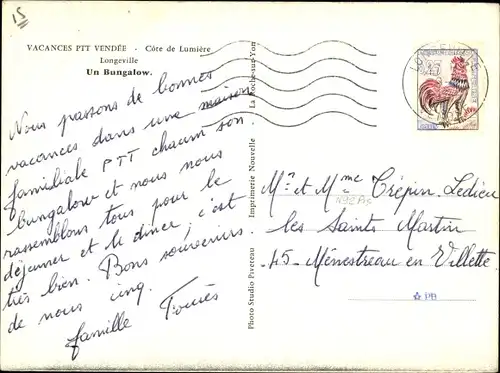 15
VACANCES PTT VENDÉE - Côte de Lumière
Longeville
Un Bungalow.
Nous passons de bonnes
vacances dans une maison
familiale PTT chacun son
bungalow et nous nous
rassemblons tous pour le
déjeuner et le dîner, c'est
très bien. Bons souvenirs
de nous cinq.
famille
Photo Studio Piveteau . Imprimerie Nouvelle . La Roche-sur-Yon
Mr et Mme Trépin Ledieu
les Saints Martin
45 - Ménestreau en Villette
PB